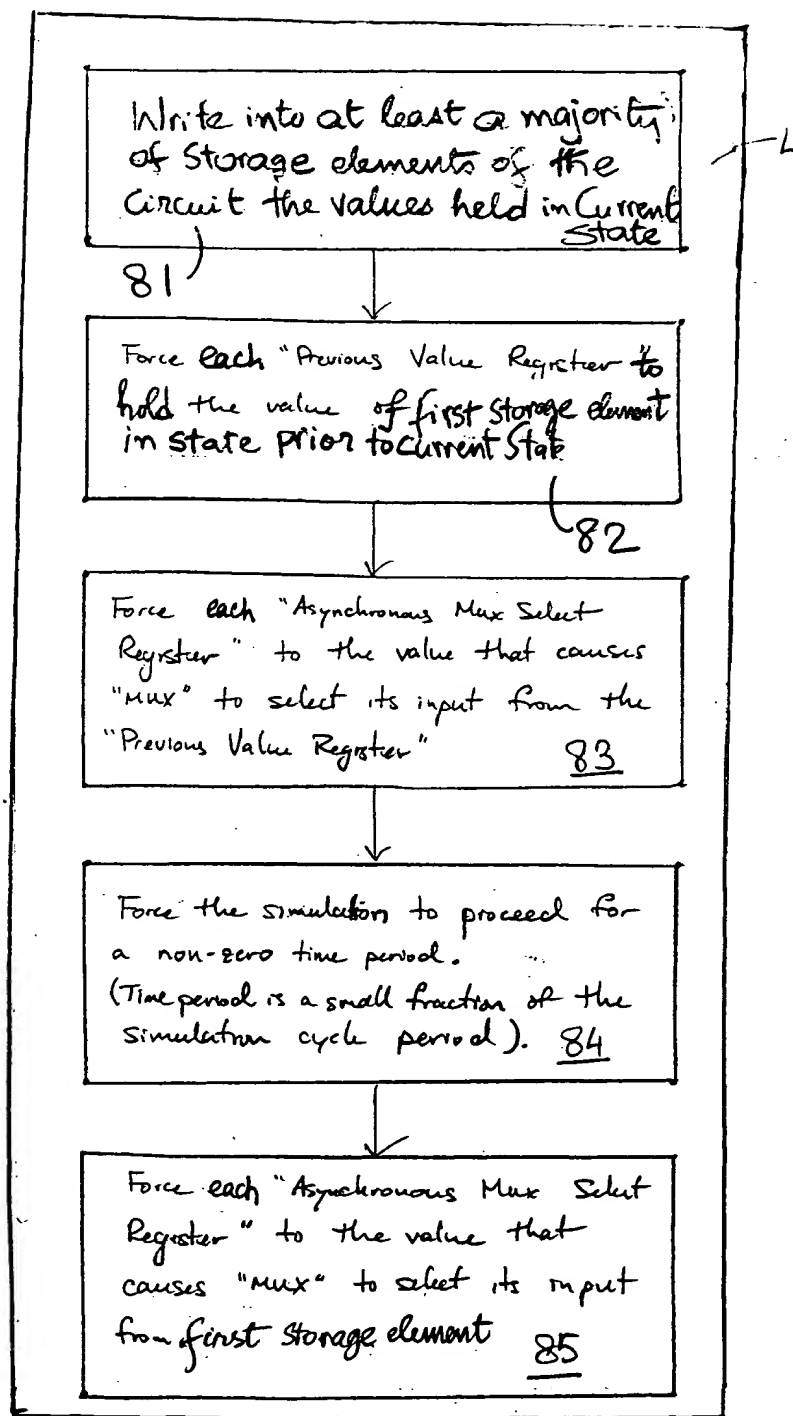 Write into at least a majority
of Storage elements of the
Circuit the values held in Current
State
81
Force each "Previous Value Register" to
hold the value of first storage element
in state prior to current State
82
Force each "Asynchronous Mux Select
Register" to the value that causes
"MUX" to select its input from the
"Previous Value Register"
83
Force the simulation to proceed for
a non-zero time period.
(Time period is a small fraction of the
simulation cycle period). 84
Force each "Asynchronous Mux Select
Register" to the value that
causes "MUX" to select its input
from first storage element 85